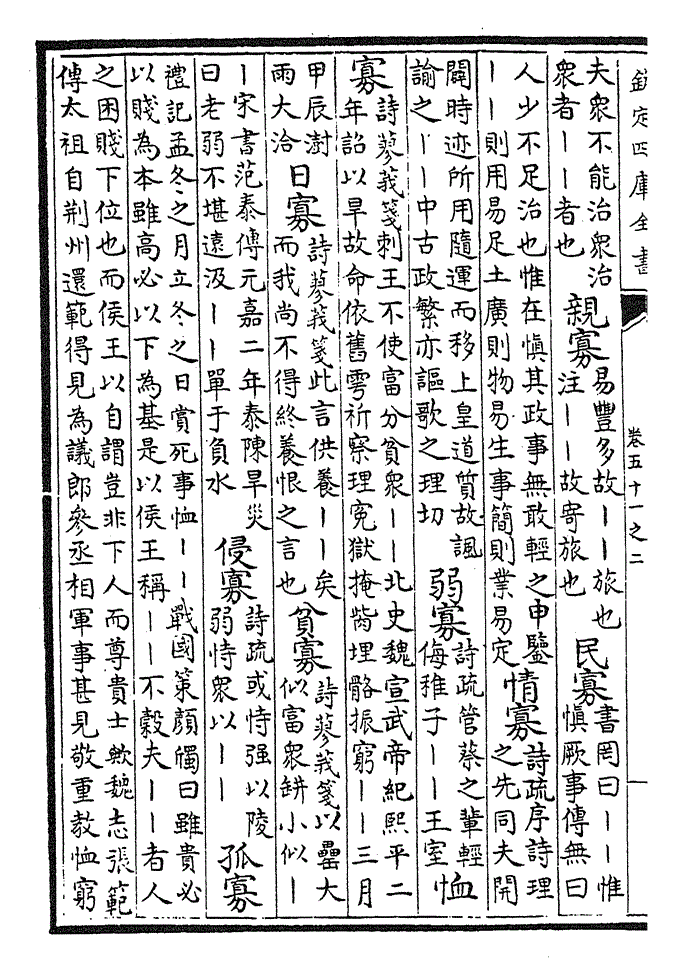 欽定四庫全書
卷五十一之二
夫衆不能治衆治
衆者丨丨者也
親寡
易豐多故丨丨旅也
注丨丨故寄旅也
民寡
書罔曰丨丨惟
慎厥事傳無曰
人少不足治也惟在慎其政事無敢輕之申鑒
丨丨則用易足土廣則物易生事簡則業易定
情寡
詩疏序詩理
之先同夫開
闢時迹所用隨運而移上皇道質故諷
諭之丨丨中古政繁亦謳歌之理切
弱寡
詩疏管蔡之輩輕
侮稚子丨丨王室
恤
寡
詩蓼莪箋刺王不使富分貧衆丨丨北史魏宣武帝紀熙平二
年詔以旱故命依舊雩祈察理寃獄掩胔埋骼振窮丨丨三月
甲辰澍
雨大洽
日寡
詩蓼莪箋此言供養丨丨矣
而我尚不得終養恨之言也
貧寡
詩蓼莪箋以罍大
似富衆缾小似丨
丨宋書范泰傳元嘉二年泰陳旱災
曰老弱不堪遠汲丨丨單于負水
侵寡
詩疏或恃强以陵
弱恃衆以丨丨
孤寡
禮記孟冬之月立冬之日賞死事恤丨丨戰國策顔觸曰雖貴必
以賤為本雖高必以下為基是以侯王稱丨丨不穀夫丨丨者人
之困賤下位也而侯王以自謂豈非下人而尊貴士歟魏志張範
傳太祖自荆州還範得見為議郎參丞相軍事甚見敬重教恤窮